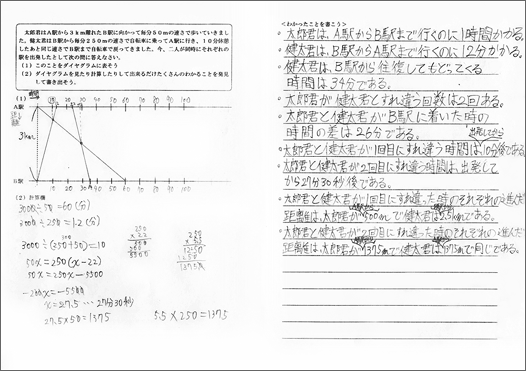 太郎君はA駅から3km離れたB駅に向かって毎分50mの速さで歩いていきました。健太君はB駅から毎分250mの速さで自転車に乗ってA駅に行き、10分休憩したあと同じ速さでB駅まで自転車で戻ってきました。今、二人が同時にそれぞれの駅を出発したとして次の問に答えなさい。
(1) このことをダイヤグラムに表そう
(2) ダイヤグラムを見たり計算したりして出来るだけたくさんのわかることを発見して書き出そう。
(1)
A駅
3km
B駅
(2) 計算
3000÷50=60(分)
3000÷250=12(分)
3000÷(250+50)=10
50x=250(x-22)
50x=250x-5500
-200x=-5500
x=27.5 … 27分30秒
27.5×50=1375
5.5×250=1375
<わかったことを書こう>
太郎君は、A駅からB駅まで行くのに1時間かかる。
健太君は、B駅からA駅まで行くのに12分かかる。
健太君は、B駅から往復してもどってくる
時間は34分である。
太郎君が健太君とすれ違う回数は2回である。
太郎君と健太君がB駅に着いた時の
時間の差は26分である。
太郎君と健太君が1回目にすれ違う時間は、出発してから10分後である。
太郎君と健太君が2回目にすれ違う時間は、出発して
から27分30秒後である。
太郎君と健太君が1回目にすれ違った時のそれぞれの進んだ
距離は、太郎君が500mで健太君は2.5kmである。
太郎君と健太君が2回目にすれ違った時のそれぞれの進んだ
距離は、太郎君が1375mで健太君は1375mで同じである。